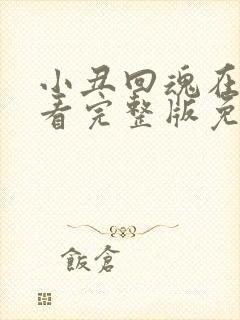 小丑回魂在
看完整版免
飯倉